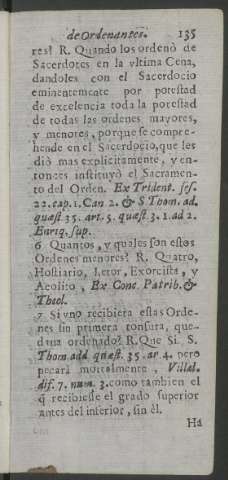 de Ordenantes. 135
res? R. Quando los ordenò de
Sacerdotes en la vltima Cena,
dandoles con el Sacerdocio
eminentemente por potestad
de excelencia toda la potestad
de todas las ordenes mayores,
y menores, porque se compre-
hende en el Sacerdocio, que les
diò mas explicitamente, y en-
tonces instituyò el Sacramen-
to del Orden. Ex Trident. ses.
22. cap. 1. Can 2. & S Thom. ad.
quæst 35. art. 5. quæst. 3. 1. ad 2.
Enriq. sup.
6 Quantos, y quales son estos
Ordenes menores? R. Quatro,
Hostiario, Letor, Exorcista, y
Acolito, Ex Conc. Patrib. &
Theol.
7 Si vno recibiera estas Orde-
nes sin primera tonsura, que-
daria ordenado? R. Que Si. S.
Thom. add quæst. 35. ar. 4. pero
pecarà mortalmente, Villal.
dif. 7. num. 3. como tambien el
q̃ recibiesse el grado superior
antes del inferior, sin èl.
Ha